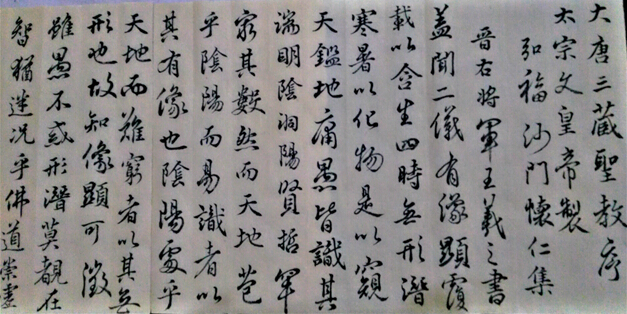 大唐三藏聖教序
太宗文皇帝製
弘福沙門懷仁集
晉右將軍王羲之書
蓋聞二儀有像顯覆
載以含生四時無形潛
寒暑以化物是以窺
天鑑地庸愚皆識其
端明陰洞陽賢哲罕
窮其數然而天地苞
乎陰陽而易識者以
其有像也陰陽處乎
天地而難窮者以其無
形也故知像顯可徵
雖愚不惑形潛莫覩在
智猶迷況乎佛道崇虛